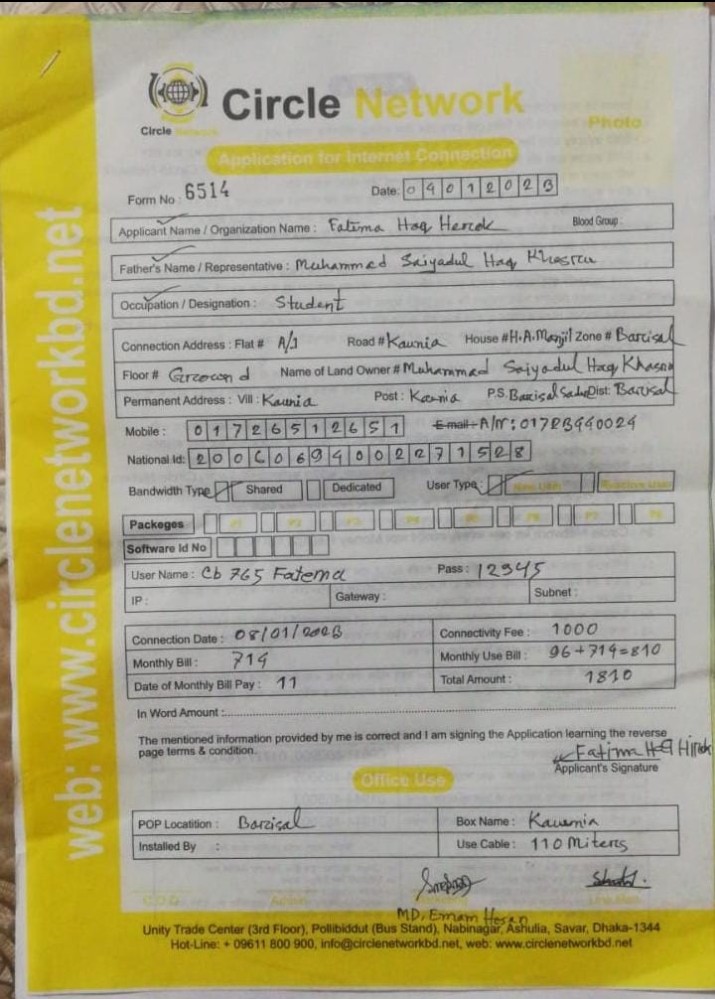 Circle Network
Circle Network
Photo
Application for Internet Connection
Form No : 6514
Date: 04012023
Applicant Name / Organization Name : Fatima Haq Herok Blood Group :
Father's Name / Representative : Muhammed Saiyadul Haq Khosru
Occupation / Designation : Student
Connection Address : Flat # A/1 Road # Kaunia House # H.A. Manjil Zone # Barisal
Floor # Ground Name of Land Owner # Muhammad Saiyadul Haq
Permanent Address : Vill : Kaunia Post : Kaunia P.S. Barisal Sadar Dist: Barisal
Mobile : 01726512651 E-mail : A/n:
National Id: 20060694002271528
Bandwidth Type Shared Dedicated User Type : New User
Packeges P1 P2 P3 P4 P5 P6 P7 P8
Software Id No
User Name : Cb 765 Fatema Pass : 12345
IP : Gateway : Subnet :
Connection Date : 08/01/2023 Connectivity Fee : 1000
Monthly Bill : 714 Monthly Use Bill : 96+714=810
Date of Monthly Bill Pay : 11 Total Amount : 1810
In Word Amount :
The mentioned information provided by me is correct and I am signing the Application learning the reverse
page terms & condition.
Fatima Haq Hirok
Applicant's Signature
Office Use
POP Locatition : Barisal Box Name : Kaunia
Installed By : Use Cable : 110 Miters
C.O.O
MD. Emam Hosan
Unity Trade Center (3rd Floor), Pollibiddut (Bus Stand), Nabinagar, Ashulia, Savar, Dhaka-1344
Hot-Line: + 09611 800 900, info@circlenetworkbd.net, web: www.circlenetworkbd.net
web: www.circlenetworkbd.net